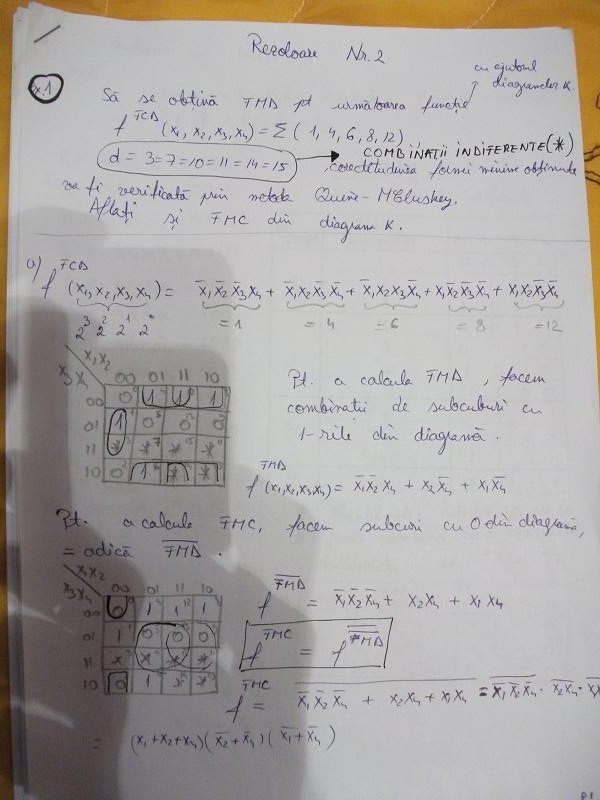 Rezolvare Nr. 2
cu ajutorul
diagramelor K.
Ex. 1
Să se obțină FMD pt următoarea funcție
f^FCD (x₁, x₂, x₃, x₄) = Σ ( 1, 4, 6, 8, 12)
d = 3=7=10=11=14=15 → COMBINAȚII INDIFERENTE (*)
, corectitudinea formei minime obținute
va fi verificată prin metoda Quine-McCluskey.
Aflați și FMC din diagrama K.
a) f^FCD (x₁, x₂, x₃, x₄) = x̄₁x̄₂x̄₃x₄ + x̄₁x₂x̄₃x̄₄ + x̄₁x₂x₃x̄₄ + x₁x̄₂x̄₃x̄₄ + x₁x₂x̄₃x̄₄
2³ 2² 2¹ 2⁰ =1 =4 =6 =8 =12
x₁x₂
x₃x₄ 00 01 11 10
00 0 1 1 1
01 1 0 0 0
11 * * * *
10 0 1 * *
Pt. a calcula FMD, facem
combinații de subcuburi cu
1-rile din diagramă.
f^FMD (x₁,x₂,x₃,x₄) = x̄₁x̄₂x₄ + x₂x̄₄ + x₁x̄₄
Pt. a calcula FMC, facem subcuri cu 0 din diagramă,
= adică F̅M̅D̅.
x₁x₂
x₃x₄ 00 01 11 10
00 0 1 1 1
01 1 0 0 0
11 * * * *
10 0 1 * *
f^F̅M̅D̅ = x̄₁x̄₂x̄₄ + x₂x₄ + x₁x₄
f^FMC = f̅^F̅M̅D̅
f^FMC = x̄₁x̄₂x̄₄ + x₂x₄ + x₁x₄ = x̄₁x̄₂x̄₄ · x₂x₄ ·
= (x₁+x₂+x₄)(x̄₂+x̄₄)(x̄₁+x̄₄)